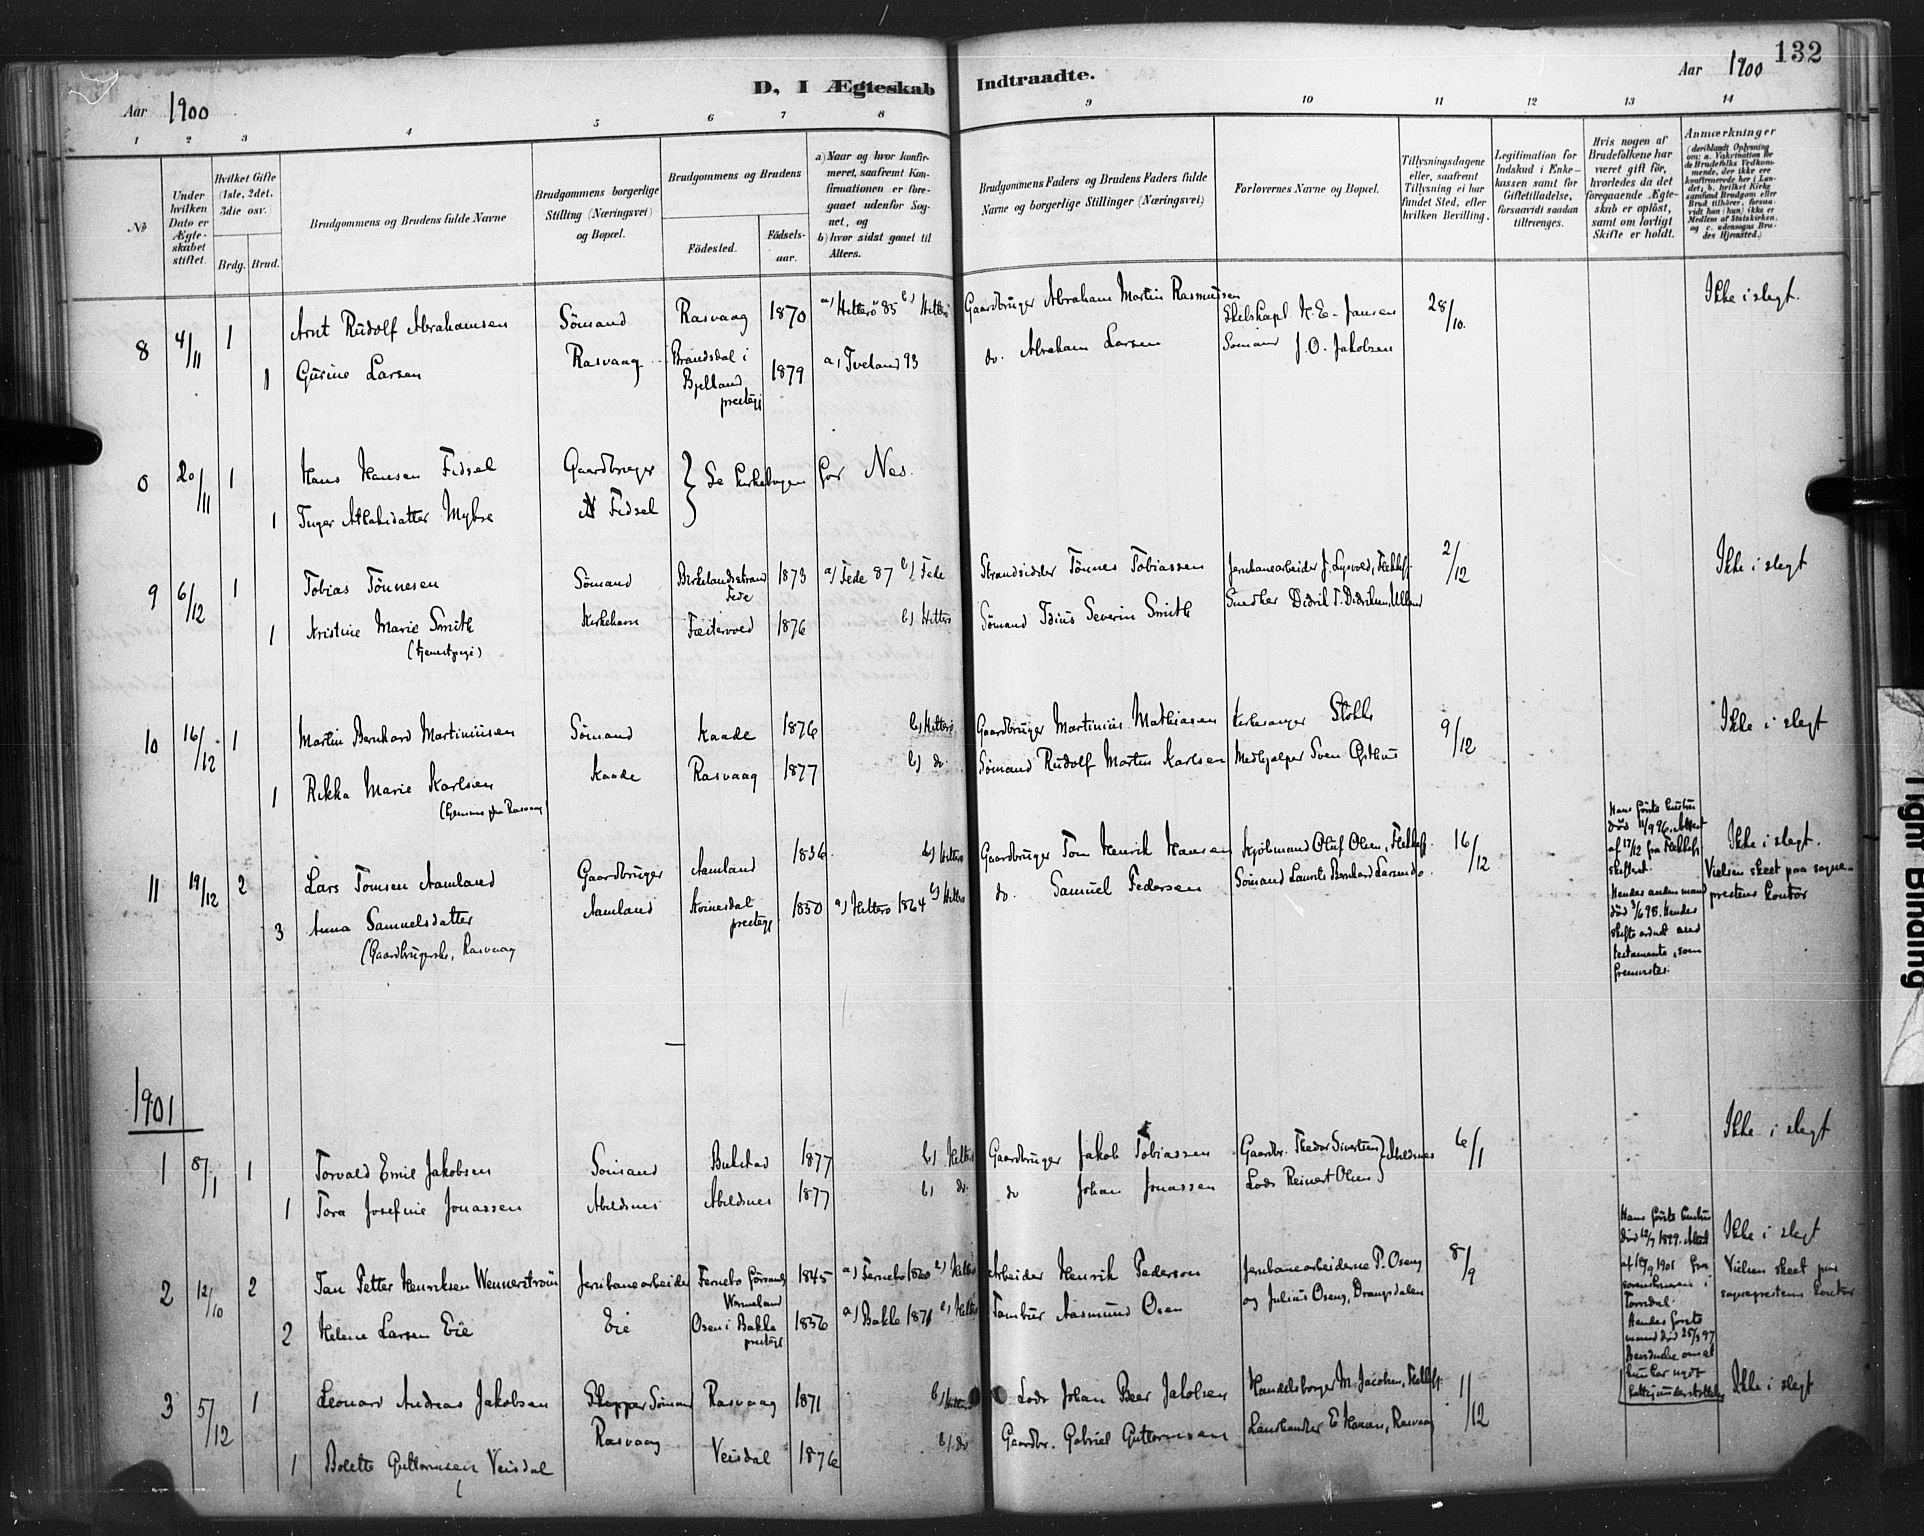 132
Aar 1900
D. I Ægteskab Indtraadte.
Aar 1900
1 2 3 4 5 6 7 8 9 10 11 12 13 14
No
Under hvilken Dato er Ægteskabet stiftet.
Hvilket Gifte (1ste, 2det, 3die osv.)
Brdg. Brud.
Brudgommens og Brudens fulde Navne
Brudgommens borgerlige Stilling (Næringsvei) og Bopæl.
Brudgommens og Brudens
Fødested.
Fødselsaar.
a) Naar og hvor konfirmeret, saafremt Konfirmationen er foregaaet udenfor Sognet, og
b) hvor sidst gaaet til Alters.
Brudgommens Faders og Brudens Faders fulde Navne og borgerlige Stillinger (Næringsvei)
Forlovernes Navne og Bopæl.
Tillysningsdagene eller, saafremt Tillysning ei har fundet Sted, efter hvilken Bevilling.
Legitimation for Indskud i Enkekassen samt for Giftetilladelse, forsaavidt saadan tiltrænges.
Hvis nogen af Brudefolkene har været gift før, hvorledes da det foregaaende Ægteskab er opløst, samt om lovligt Skifte er holdt.
Anmærkninger
(deriblandt Oplysning om: a. Vakcination for de Brudefolks Vedkommende, der ikke ere konfirmerede her i Landet; b. hvilket Kirkesamfund Brudgom eller Brud tilhører, forsaavidt han (hun) ikke er Medlem af Statskirken, og c. udensogns Brudes Hjemsted.)
8 4/11 1 Arnt Rudolf Abrahamsen Sømand Rasvaag 1870 a) Hitterø 85 b) Hitterø Gaardbruger Abraham Martin Rasmussen Skibskapt. H. E. Jansen 28/10. Ikke i slegt.
1 Gurine Larsen Rasvaag Brandsdal i Bjelland prestegj 1879 a) Tveland 93 do. Abraham Larsen Sømand J. O. Jakobsen
0 20/11 1 Hans Hansen Fidsel Gaardbruger } Se Kirkebogen for Nes.
1 Inger Mybre N Fidsel
9 6/12 1 Tobias Tønnesen Sømand Birkelandsstrand Fede 1873 a) Fede 87 b) Fede Strandsidder Tønnes Tobiassen Jernbanearbeider J. Lysvold, Flekkefj. 2/12 Ikke i slegt
1 Kristine Marie Smith Kirkehavn 1876 b) Hitterø Sømand Severin Smith Snedker Didrik T. Didriksen,
(tjenestpige)
10 16/12 1 Martin Bernhard Martiniusen Sømand Kaade 1876 b) Hitterø Gaardbruger Martinius Mathiasen Kirkesanger Stokke 9/12 Ikke i slegt
1 Rikka Marie Karlsen Kaade Rasvaag 1877 b) do. Sømand Rudolf Martin Karlsen Medhjælper Sven Østhus
(hjemme fra Rasvaag)
11 19/12 2 Lars Tomsen Aamland Gaardbruger Aamland 1836 b) Hitterø Gaardbruger Tom Henrik Hansen Kjøbmand Oluf Olsen, Flekkefj. 16/12
3 Anna Samuelsdatter Aamland Kvinesdal prestegj 1850 a) Hitterø 1864 b) Hitterø do. Samuel Pedersen Sømand Laurits Bernhard Larsen do.
(Gaardbrugerske, Rasvaag
Hans første hustru død 11/9 96. Attest af 17/12 fra Flekkefj. skifteret. Hendes anden mand død 3/6 98. Hendes skifte ordnet ved testamente, som fremvistes.
Ikke i slegt. Vielsen skeet paa sogneprestens kontor
1901
1 8/1 1 Torvald Emil Jakobsen Sømand Bukstad 1877 b) Hitterø Gaardbruger Jakob Tobiassen Gaardbr. Thedor Sivertsen } Abildsnes 6/1 Ikke i slegt
1 Tora Josefine Jonassen Abildsnes Abildsnes 1877 b) do. do Johan Jonassen Lods Reinert Olsen
2 12/10 2 Jan Petter Henriksen Wennerstrøm Jernbanearbeider Fernebo Wermeland 1845 a) Fernebo 1860 b) Hitterø Arbeider Henrik Pederson Jernbanearbeiderne P. Oseng 8/9
2 Helene Larsen Eie Eie Osen i Bakke prestegj 1856 a) Bakke 1871 b) Hitterø Tambur Aasmund Osen og Julius Oseng, Drangsdalen
Hans første hustru død 12/7 1899. Attest af 18/9 1901 fra sorenskriveren i
Hendes første mand død 25/3 97
Ikke i slegt Vielsen skeet paa sogneprestens kontor
3 5/12 1 Leonard Andreas Jakobsen Skipper Sømand Rasvaag 1871 b) Hitterø Lods Johan Beer Jakobsen Handelsborger M. Jacobsen, Flekkefj. 1/12 Ikke i slegt
1 Bolette Guttormsen Veisdal Rasvaag Veisdal 1876 b) do Gaardbr. Gabriel Guttormsen Landhandler E. Hansen, Rasvaag
Tight Binding